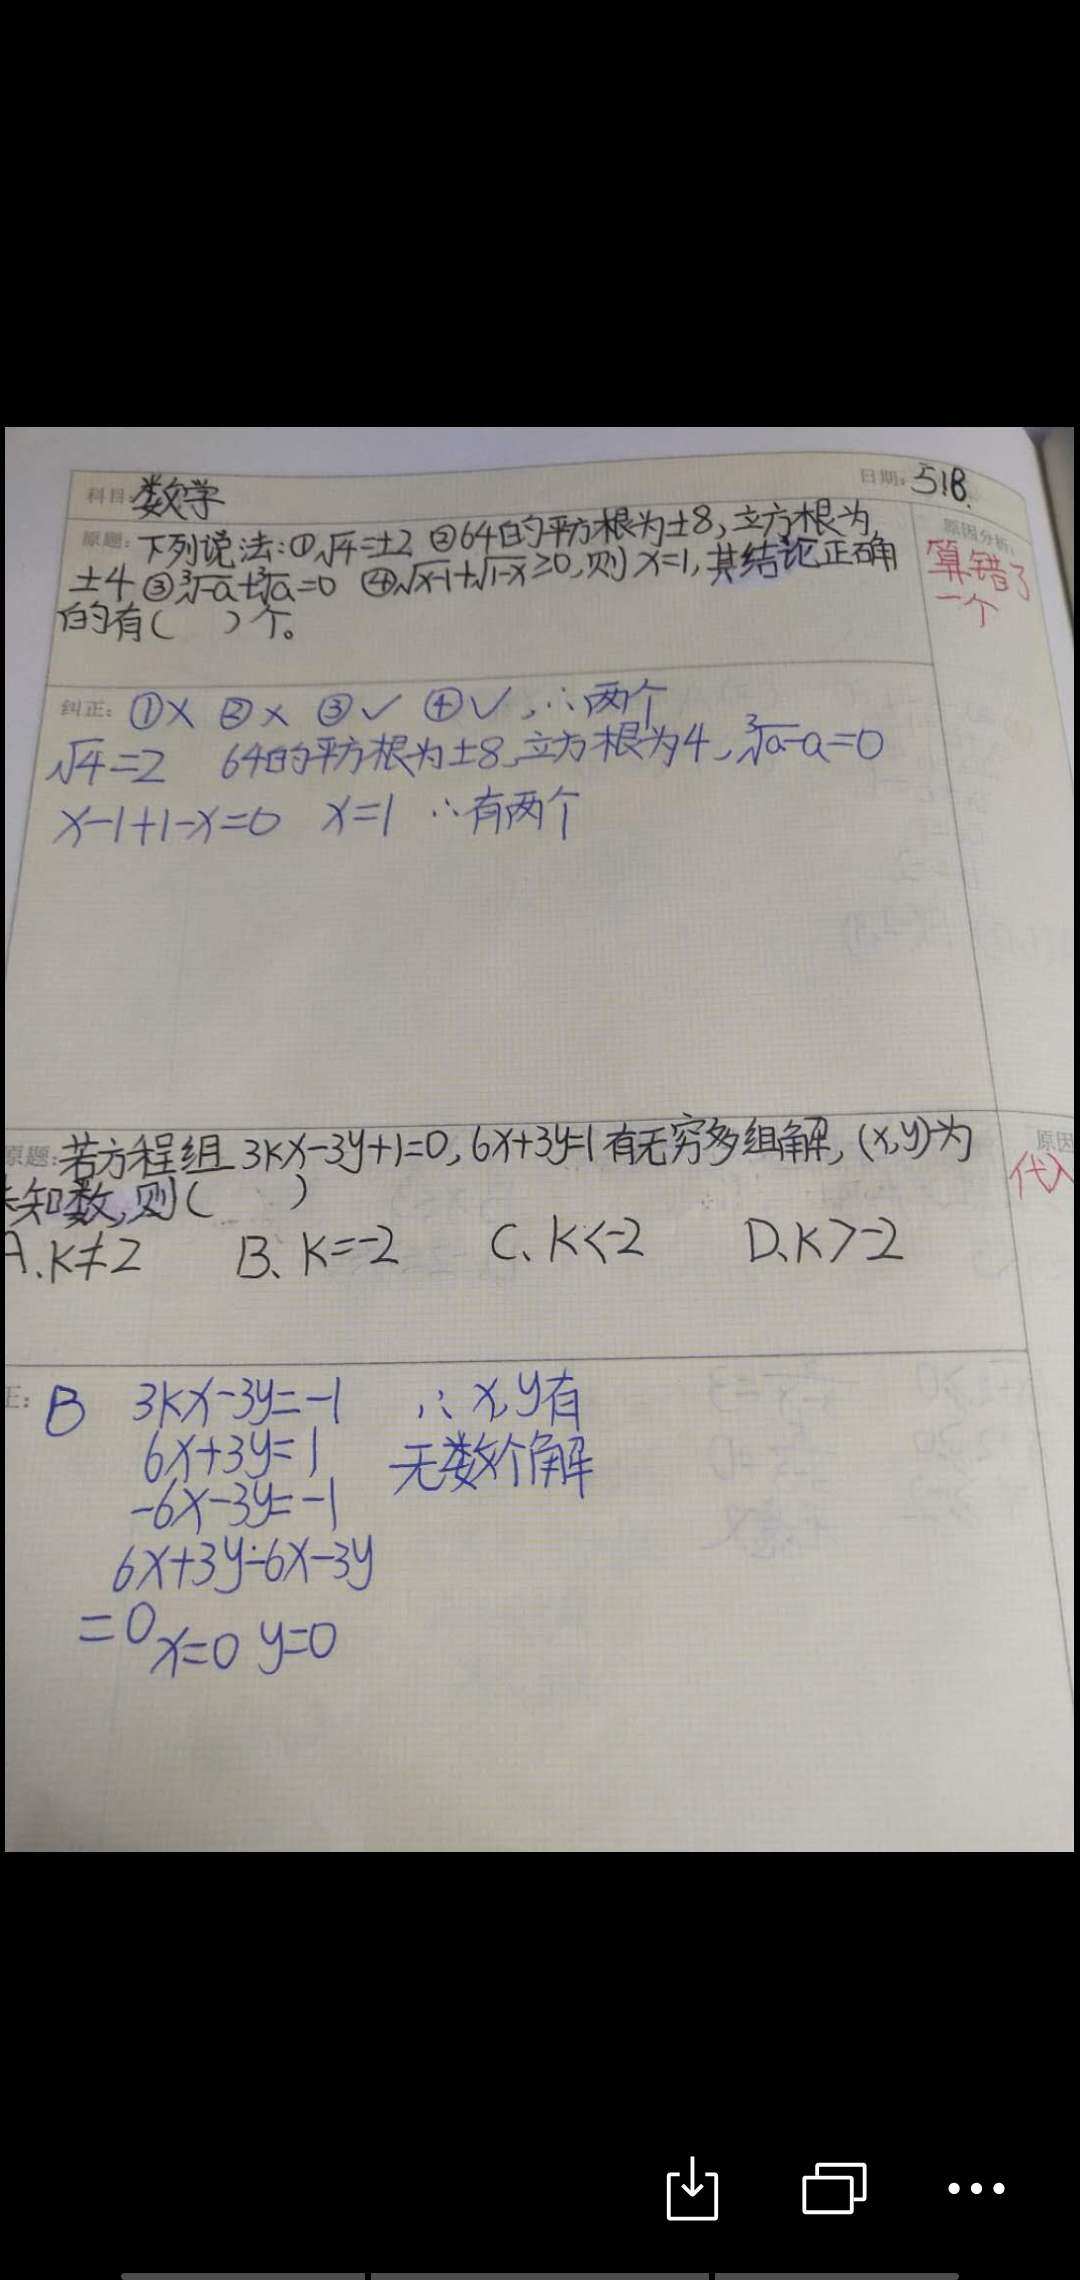 科目: 数学
日期: 518.
原题: 下列说法:①√4=±2 ②64的平方根为±8,立方根为
±4 ③³√-a+³√a=0 ④√x-1+√1-x≥0,则x=1,其结论正确
的有( )个。
原因分析:
算错了
一个
纠正: ①× ②× ③✓ ④✓,∴两个
√4=2 64的平方根为±8,立方根为4,³√a-a=0
x-1+1-x=0 x=1 ∴有两个
原题: 若方程组3kx-3y+1=0,6x+3y=1有无穷多组解,(x,y)为
未知数,则( )
A.k≠2 B、k=-2 C、k<-2 D、k>-2
原因
代入
正: B 3kx-3y=-1 ∴x,y有
6x+3y=1 无数个解
-6x-3y=-1
6x+3y-6x-3y
=0 x=0 y=0